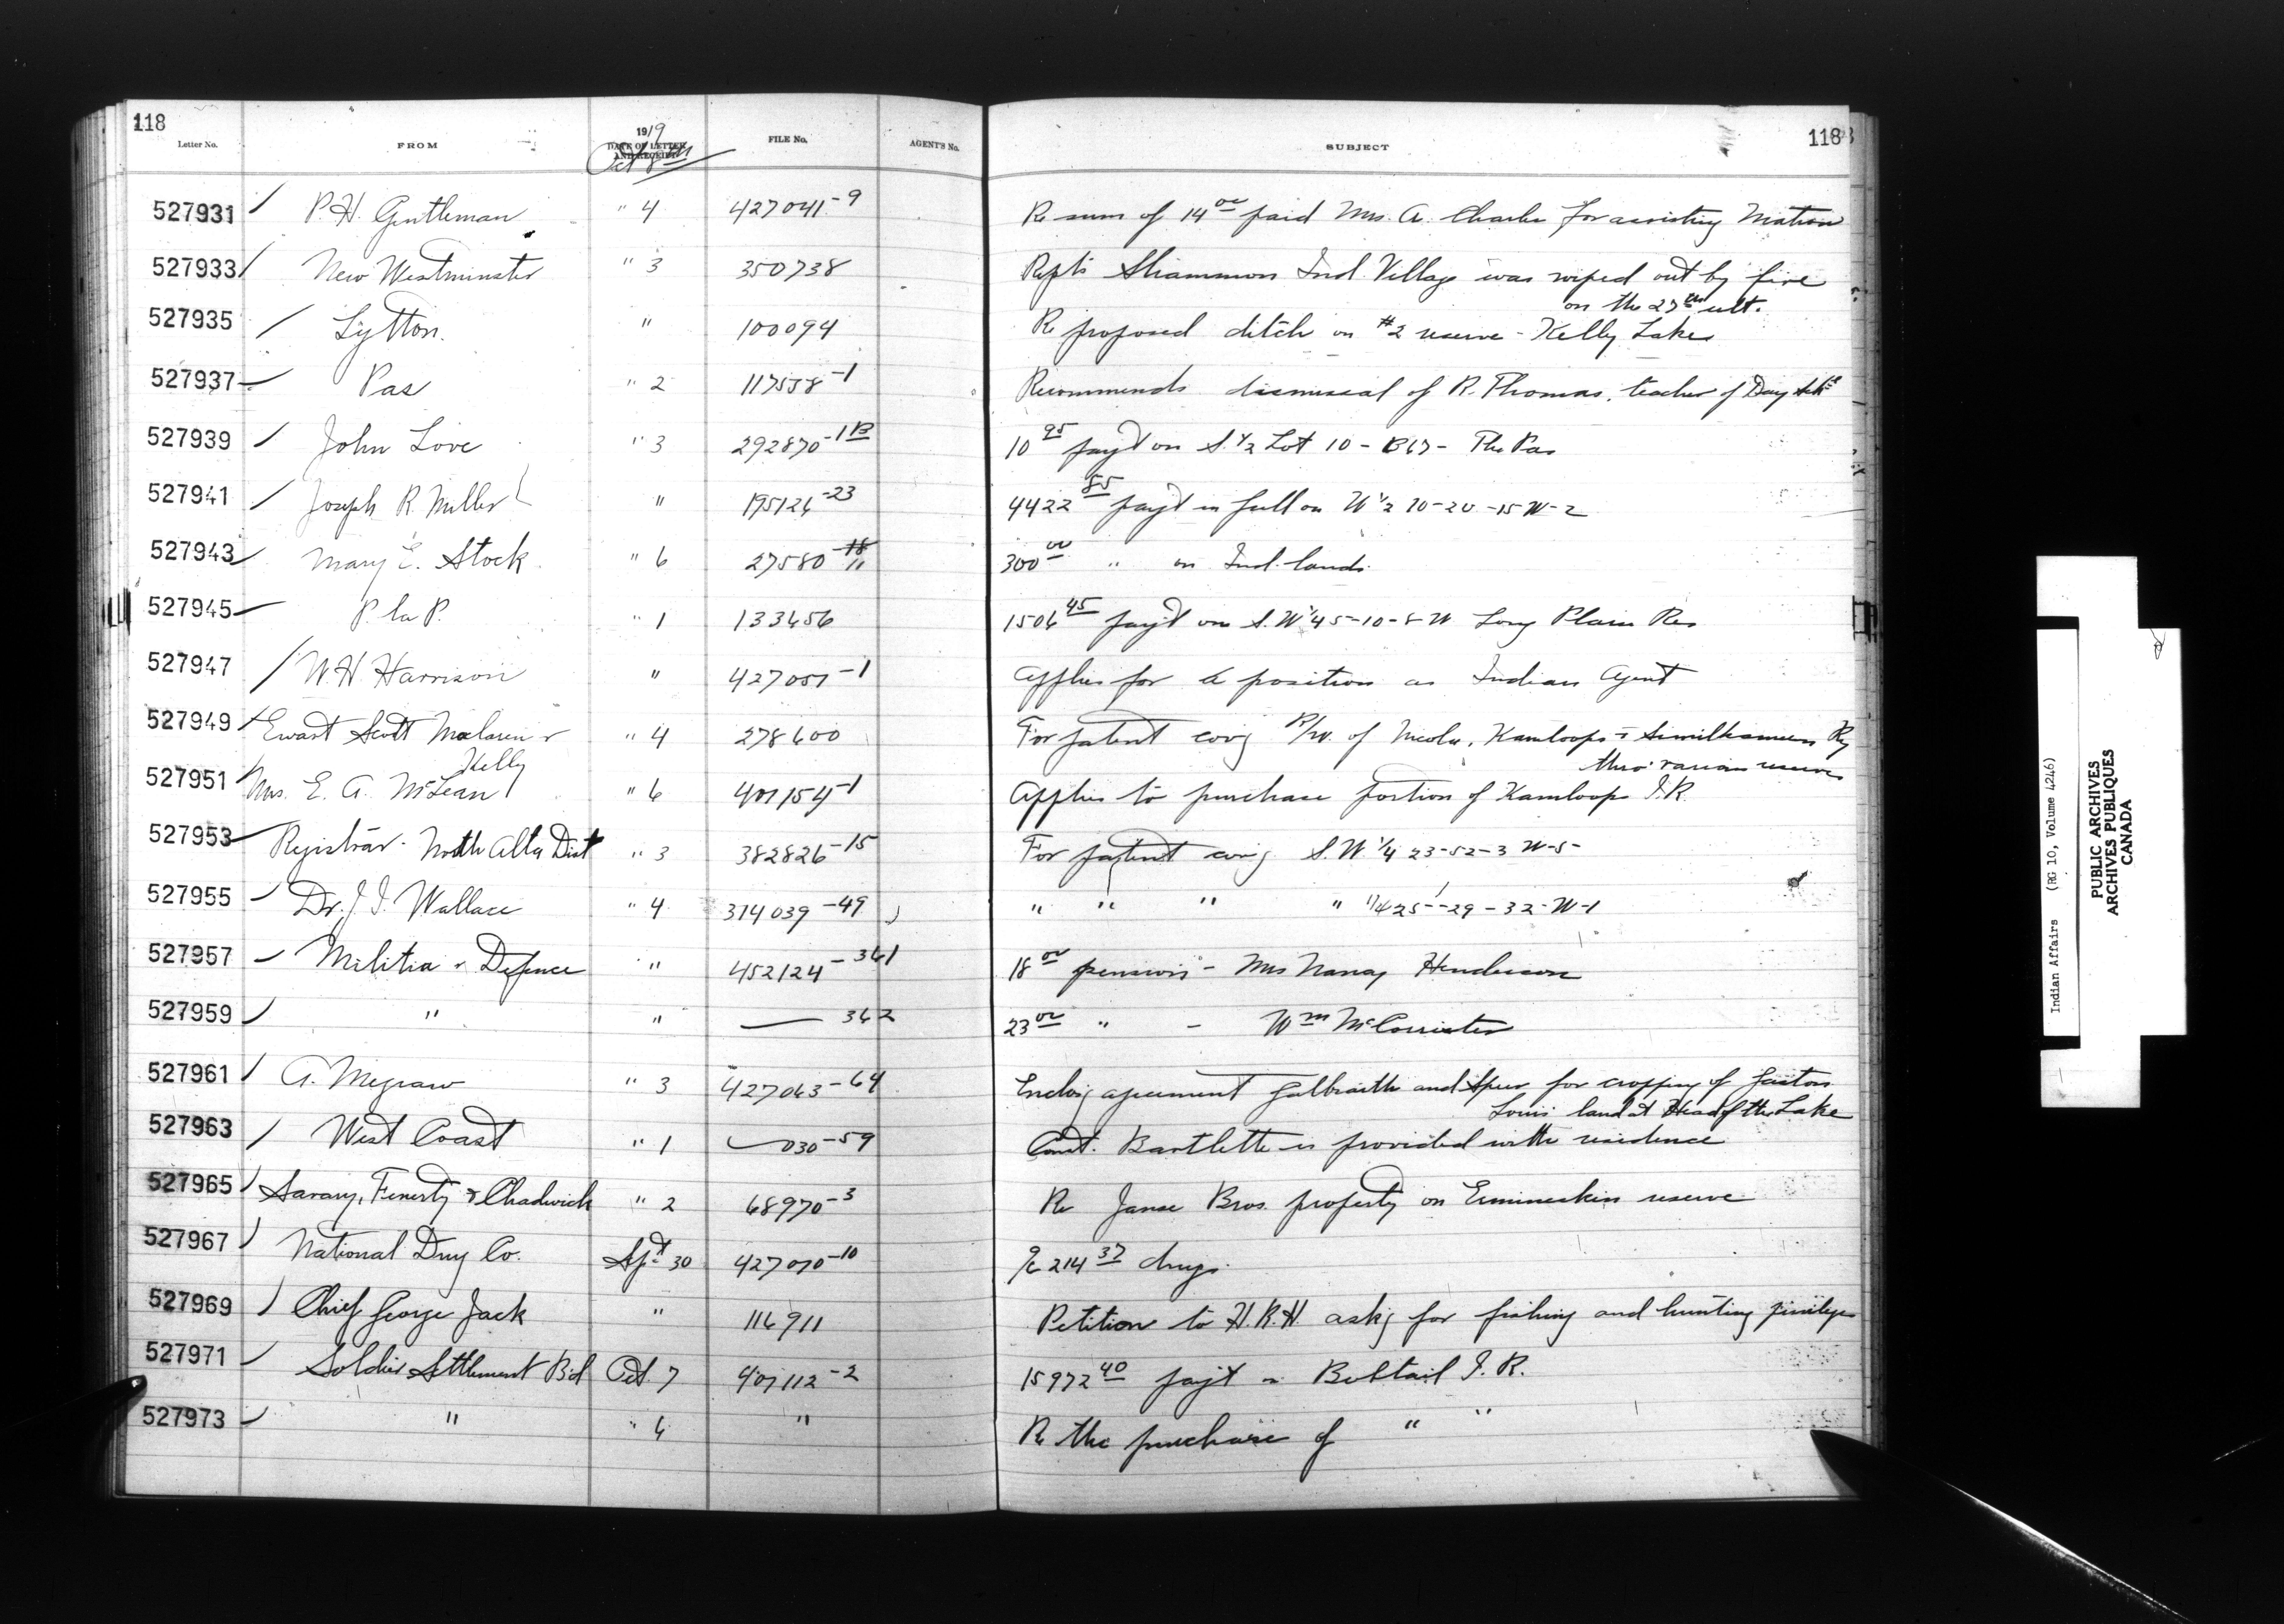 118
118
Letter No. FROM 1919 DATE OF LETTER AND RECEIPT FILE No. AGENT'S No. SUBJECT
Oct 8th
527931 P. H. Gentleman " 4 427041-9 Re sum of 14 00 paid Mrs. A. Charlie for assisting Matron
527933 New Westminster " 3 350738 Repts Sliammon Ind. Village was wiped out by fire
on the 27th ult.
527935 Lytton. " 100094 Re proposed ditch on #2 reserve - Kelly Lake
527937 Pas " 2 117538-1 Recommends dismissal of R. Thomas, teacher of Day Schl
527939 John Love " 3 292870-1B 10 95 payt on S. 1/2 Lot 10 - B17 - The Pas
527941 Joseph R. Miller " 195126-23 4422 85 payt in full on W 1/2 10-20-15 W-2
527943 Mary E. Stock " 6 27580-11 300 00 " on Ind. lands.
527945 P. la P. " 1 133656 1506 45 payt on S.W 1/4 5-10-8-W Long Plain Res
527947 W. H. Harrison " 427051-1 Applies for a position as Indian Agent
527949 Ewart Scott Maclaren & " 4 278600 For patent covg R/W. of Nicola, Kamloops & Similkameen Ry
Kelly thro' various reserves
527951 Mrs. E. A. McLean " 6 401154-1 Applies to purchase portion of Kamloops I.R.
527953 Registrar - North Alta Dist " 3 382826-15 For patent covg S.W. 1/4 23-52-3 W-5-
527955 Dr. J. I. Wallace " 4 374039-49 " " " " 1/4 25-29-32-W-1
527957 Militia & Defence " 452124-361 18 00 pension - Mrs Nancy Henderson
527959 " " — 362 23 00 " - Wm McCorrister
527961 A. Megraw " 3 427063-64 Enclos'g agreement Galbraith and Speer for cropping of Gaston
Louis' land at Head of the Lake
527963 West Coast " 1 — 030-59 Const. Bartlette is provided with residence
527965 Savary, Fenerty & Chadwick " 2 68970-3 Re Janse Bros. property on Ermineskin reserve
527967 National Drug Co. Sept 30 427070-10 a/c 214 37 drugs.
527969 Chief George Jack " 116911 Petition to H.R.H askg for fishing and hunting privileges
527971 Soldier Settlement B'd Oct. 7 401112-2 15972 40 payt on Bobtail I.R.
527973 " " 6 " Re the purchase of " "
Indian Affairs (RG 10, Volume 4246)
PUBLIC ARCHIVES
ARCHIVES PUBLIQUES
CANADA